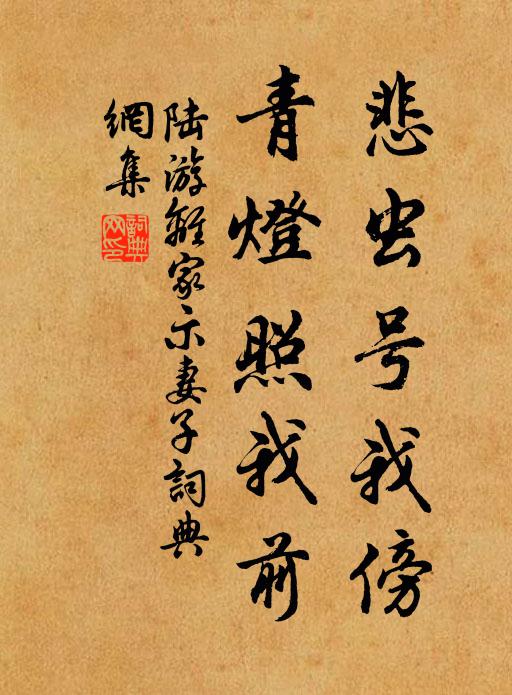 悲虫号我傍
青燈照我前
陆游離家示妻子詞典
網集
詞典
网印